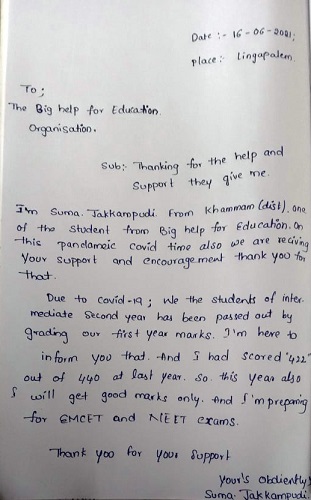 Date :- 16-06-2021;
place:- Lingapalem.
To;
The Big help for Education
Organisation.
Sub:- Thanking for the help and
Support they give me.
I'm Suma. Jakkampudi. From Khammam (dist), one
of the student from Big help for Education. On
this pandameic covid time also we are reciving
Your support and encouragement thank you for
that.
Due to covid-19; we the students of inter-
mediate Second year has been passed out by
grading our first year marks. I'm here to
inform you that. And I had scored "422"
out of 440 at last year. So. this year also
I will get good marks only. And I'm preparing
for EMCET and NEET exams.
Thank you for your Support
Your's obdiently,
Suma. Jakkampudi